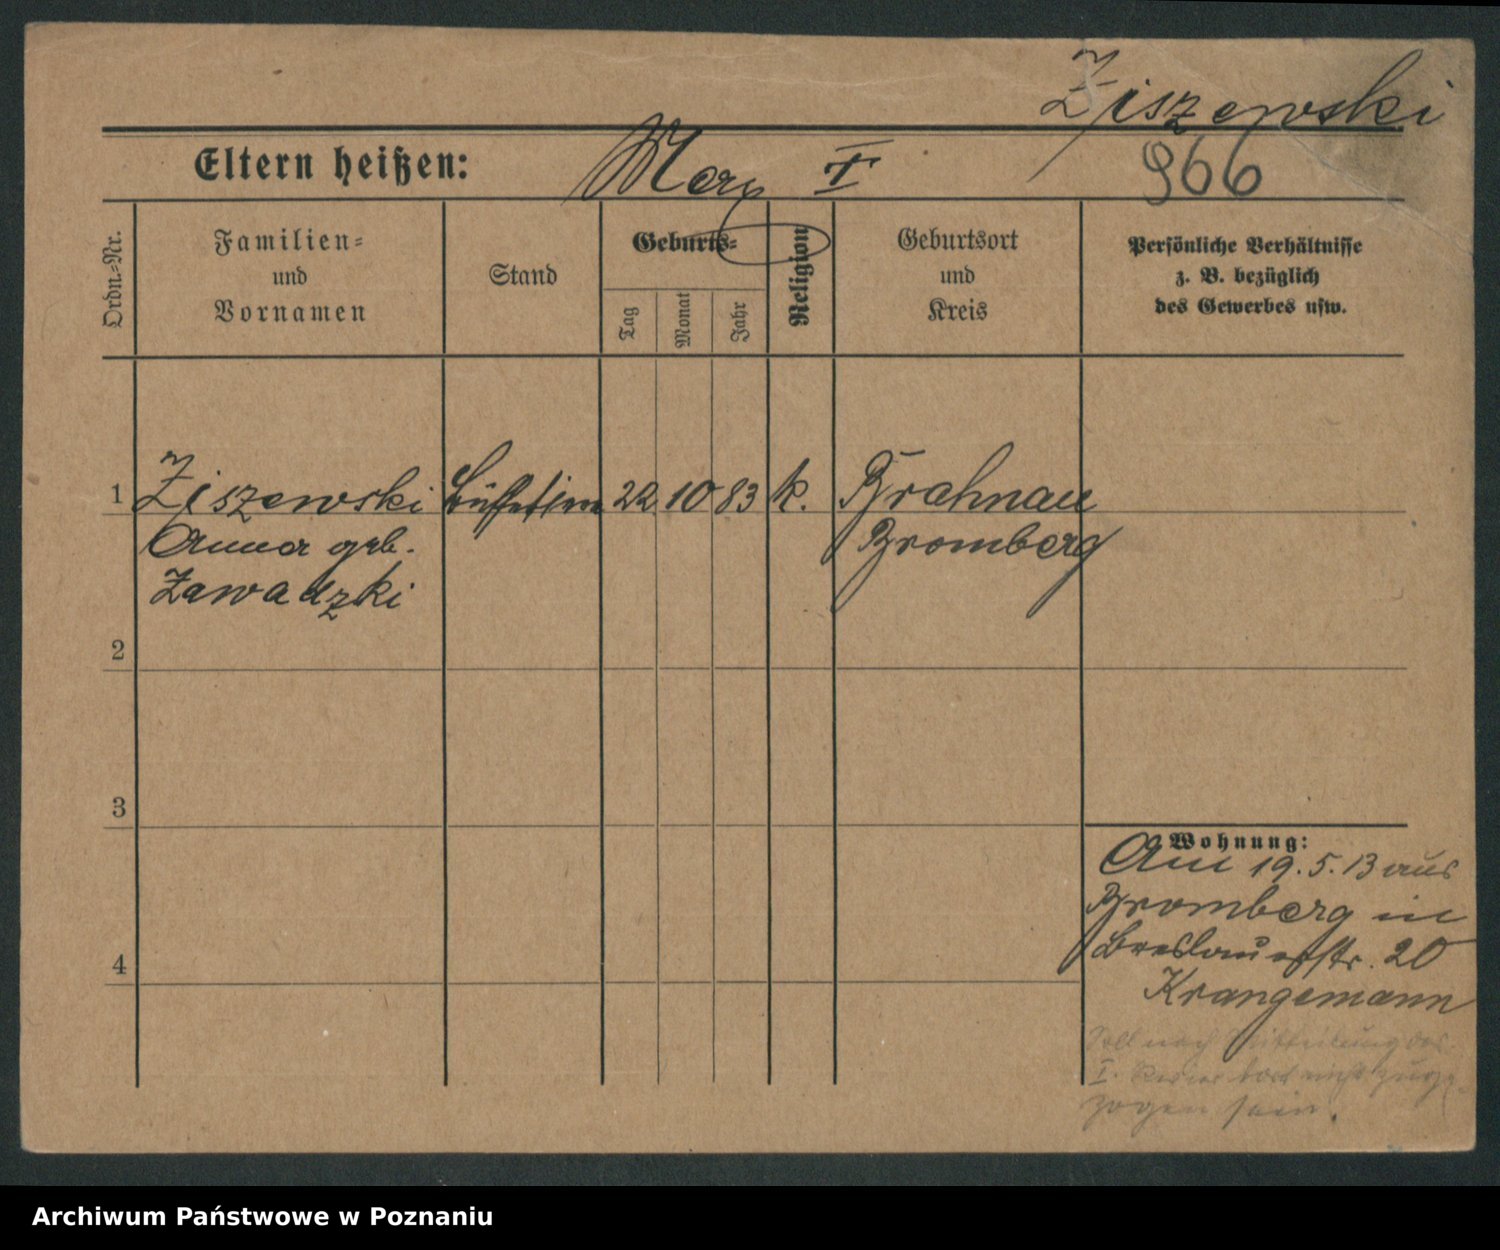 Ziszewski
Eltern heißen: Marx I 966
Ordn.=Nr.
Familien=
und
Vornamen
Stand
Geburts=
Tag
Monat
Jahr
Religion
Geburtsort
und
Kreis
Persönliche Verhältnisse
z. B. bezüglich
des Gewerbes usw.
1 Ziszewski 22 10 83 k. Brahnau
Anna geb. Bromberg
Zawadzki
2
3
4
Wohnung:
Am 19.5.13 aus
Bromberg in
Breslauerstr. 20
Krangemann
Soll nach Mitteilung des
I. Revier dort nicht zuge-
zogen sein.
Archiwum Państwowe w Poznaniu